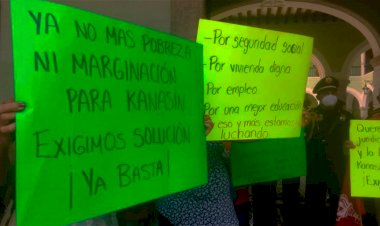 YA NO MAS POBREZA
NI MARGINACIÓN
PARA KANASIN
EXIGIMOS SOLUCIÓN
¡YA BASTA!
-Por seguridad social
-Por vivienda digna
-Por empleo
-Por una mejor educación
eso y más estamos
luchando
juridi
y la
Kanasi
¡Exi